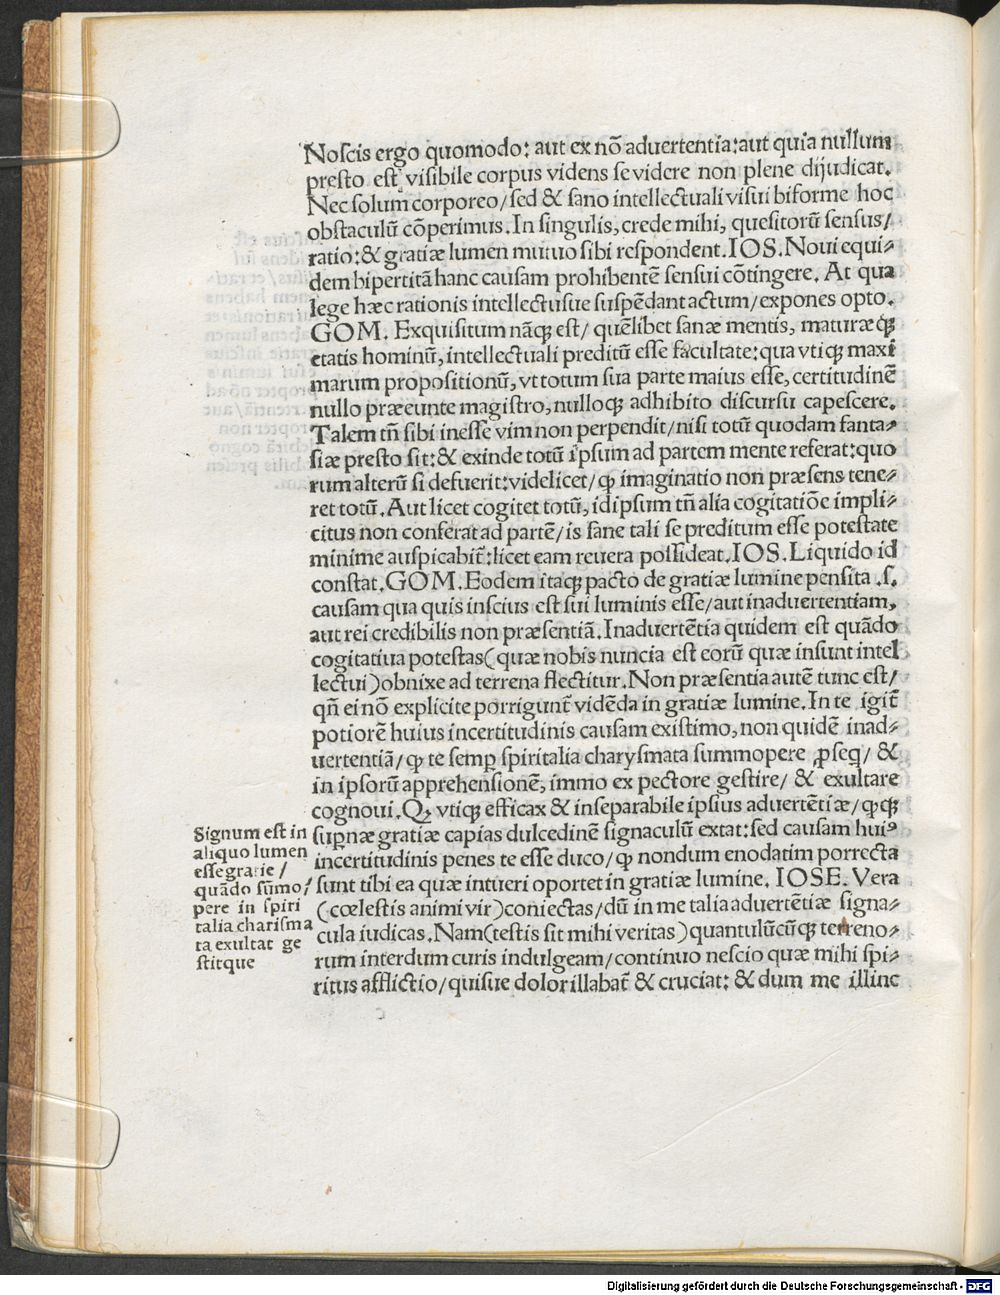 Noſcis ergo quomodo: aut ex nõ aduertentia: aut quia nullum
preſto eſt viſibile corpus videns ſe videre non plene dijudicat.
Nec ſolum corporeo/ ſed & ſano intellectuali viſui biforme hoc
obſtaculũ cõperimus. In ſingulis, crede mihi, queſitorũ ſenſus/
ratio: & gratiæ lumen mutuo ſibi reſpondent. IOS. Noui equi⸗
dem bipertitã hanc cauſam prohibentẽ ſenſui cõtingere. At qua
lege hæc rationis intellectuſue ſuſpẽdant actum/ expones opto.
GOM. Exquiſitum nãqꝫ eſt/ quẽlibet ſanæ mentis, maturæqꝫ
etatis hominũ, intellectuali preditũ eſſe facultate: qua vtiqꝫ maxi
marum propoſitionũ, vt totum ſua parte maius eſſe, certitudinẽ
nullo præeunte magiſtro, nulloqꝫ adhibito diſcurſu capeſcere.
Talem tñ ſibi ineſſe vim non perpendit/ niſi totũ quodam fanta⸗
ſiæ preſto ſit: & exinde totũ ipſum ad partem mente referat: quo
rum alterũ ſi defuerit: videlicet/ ꝙ imaginatio non præſens tene⸗
ret totũ. Aut licet cogitet totũ, id ipſum tñ alia cogitatiõe impli⸗
citus non conferat ad partẽ/ is ſane tali ſe preditum eſſe poteſtate
minime auſpicabit̃: licet eam reuera poſſideat. IOS. Liquido id
conſtat. GOM. Eodem itaqꝫ pacto de gratiæ lumine penſita .ſ.
cauſam qua quis inſcius eſt ſui luminis eſſe/ aut inaduertentiam,
aut rei credibilis non præſentiã. Inaduertẽtia quidem eſt quãdo
cogitatiua poteſtas (quæ nobis nuncia eſt eorũ quæ inſunt intel
lectui) obnixe ad terrena flectitur. Non præſentia autẽ tunc eſt/
qñ ei nõ explicite porrigunt̃ vidẽda in gratiæ lumine. In te igit̃
potiorẽ huius incertitudinis cauſam exiſtimo, non quidẽ inad⸗
uertentiã/ ꝙ te ſemꝑ ſpiritalia charyſmata ſummopere ꝓſeq/ &
in ipſorũ apprehenſionẽ, immo ex pectore geſtire/ & exultare
cognoui. Qꝫ vtiqꝫ efficax & inſeparabile ipſius aduertẽtiæ/ ꝙqꝫ
ſuꝑnæ gratiæ capias dulcedinẽ ſignaculũ extat: ſed cauſam huiꝰ
incertitudinis penes te eſſe duco/ ꝙ nondum enodatim porrecta
ſunt tibi ea quæ intueri oportet in gratiæ lumine. IOSE. Vera
(cœleſtis animi vir) coniectas/ dũ in me talia aduertẽtiæ ſigna⸗
cula iudicas. Nam (teſtis ſit mihi veritas) quantulũcũqꝫ terreno⸗
rum interdum curis indulgeam/ continuo neſcio quæ mihi ſpi⸗
ritus afflictio/ quiſue dolor illabat̃ & cruciat: & dum me illinc
Signum eſt in
aliquo lumen
eſſe gratie/
quãdo ſũmo/
pere in ſpiri
talia chariſma
ta exultat ge
ſtitque
Digitalisierung gefördert durch die Deutsche Forschungsgemeinschaft - DFG